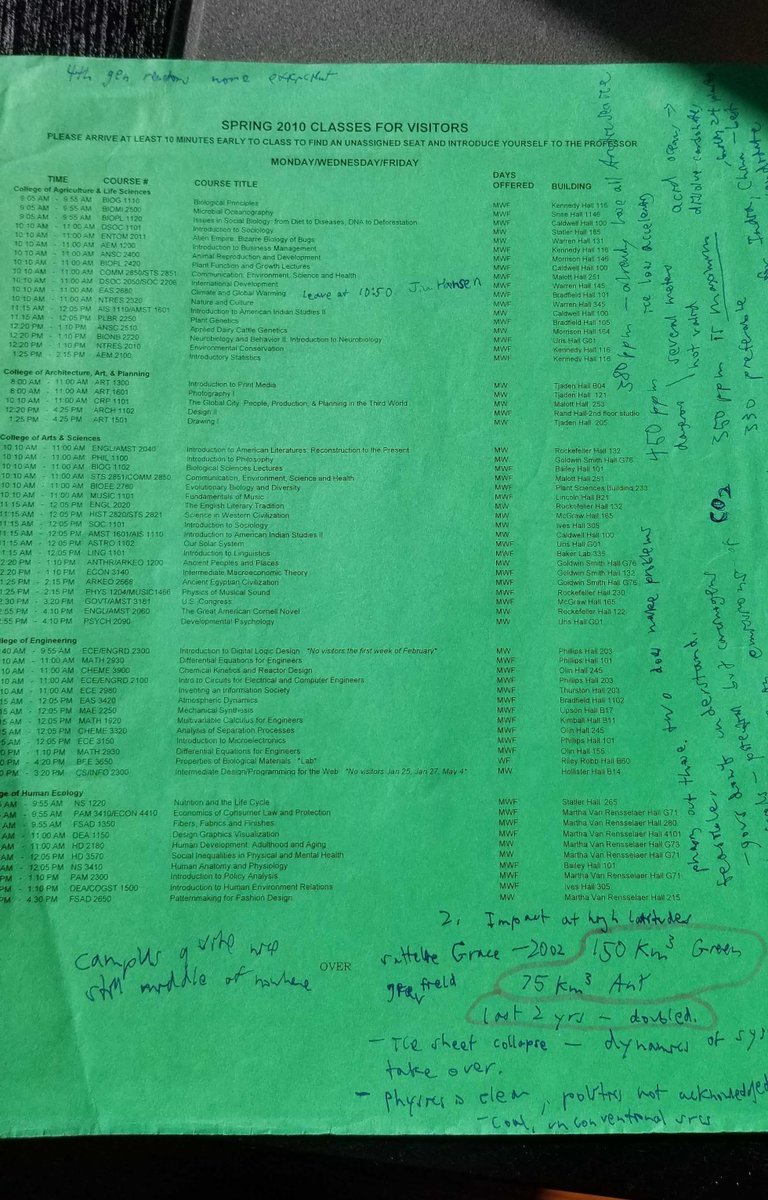 4th gen reactors more efficient
SPRING 2010 CLASSES FOR VISITORS
PLEASE ARRIVE AT LEAST 10 MINUTES EARLY TO CLASS TO FIND AN UNASSIGNED SEAT AND INTRODUCE YOURSELF TO THE PROFESSOR
MONDAY/WEDNESDAY/FRIDAY
TIME COURSE # COURSE TITLE DAYS OFFERED BUILDING
College of Agriculture & Life Sciences
9:05 AM - 9:55 AM BIOG 1110 Biological Principles MWF Kennedy Hall 116
9:05 AM - 9:55 AM BIOMI 2500 Microbial Oceanography MWF Snee Hall 1146
9:05 AM - 9:55 AM BIOPL 1120 Issues in Social Biology: from Diet to Diseases, DNA to Deforestation MWF Caldwell Hall 100
10:10 AM - 11:00 AM DSOC 1101 Introduction to Sociology MW Statler Hall 185
10:10 AM - 11:00 AM ENTOM 2011 Alien Empire: Bizarre Biology of Bugs MWF Warren Hall 131
10:10 AM - 11:00 AM AEM 1200 Introduction to Business Management MWF Kennedy Hall 116
10:10 AM - 11:00 AM ANSC 2400 Animal Reproduction and Development MWF Morrison Hall 146
10:10 AM - 11:00 AM BIOPL 2420 Plant Function and Growth Lectures MWF Caldwell Hall 100
10:10 AM - 11:00 AM COMM 2850/STS 2851 Communication, Environment, Science and Health MWF Malott Hall 251
10:10 AM - 11:00 AM DSOC 2050/SOC 2206 International Development MWF Warren Hall 145
10:10 AM - 11:00 AM EAS 2680 Climate and Global Warming MWF Bradfield Hall 101
Leave at 10:50 Jim Hansen
10:10 AM - 11:00 AM NTRES 2320 Nature and Culture MWF Warren Hall 345
11:15 AM - 12:05 PM AIS 1110/AMST 1601 Introduction to American Indian Studies II MW Caldwell Hall 100
11:15 AM - 12:05 PM PLBR 2250 Plant Genetics MWF Bradfield Hall 105
12:20 PM - 1:10 PM ANSC 2510 Applied Dairy Cattle Genetics MW Morrison Hall 164
12:20 PM - 1:10 PM BIONB 2220 Neurobiology and Behavior II: Introduction to Neurobiology MWF Uris Hall G01
12:20 PM - 1:10 PM NTRES 2010 Environmental Conservation MWF Kennedy Hall 116
1:25 PM - 2:15 PM AEM 2100 Introductory Statistics MWF Kennedy Hall 116
College of Architecture, Art, & Planning
8:00 AM - 11:00 AM ART 1300 Introduction to Print Media MW Tjaden Hall B04
8:00 AM - 11:00 AM ART 1601 Photography I MW Tjaden Hall 121
10:10 AM - 11:00 AM CRP 1101 The Global City: People, Production, & Planning in the Third World MW Malott Hall 253
12:20 PM - 4:25 PM ARCH 1102 Design II MWF Rand Hall-2nd floor studio
1:25 PM - 4:25 PM ART 1501 Drawing I MW Tjaden Hall 205
College of Arts & Sciences
10:10 AM - 11:00 AM ENGL/AMST 2040 Introduction to American Literatures: Reconstruction to the Present MW Rockefeller Hall 132
10:10 AM - 11:00 AM PHIL 1100 Introduction to Philosophy MW Goldwin Smith Hall G76
10:10 AM - 11:00 AM BIOG 1102 Biological Sciences Lectures MWF Bailey Hall 101
10:10 AM - 11:00 AM STS 2851/COMM 2850 Communication, Environment, Science and Health MWF Malott Hall 251
10:10 AM - 11:00 AM BIOEE 2780 Evolutionary Biology and Diversity MWF Plant Sciences Building 233
10:10 AM - 11:00 AM MUSIC 1101 Fundamentals of Music MWF Lincoln Hall B21
11:15 AM - 12:05 PM ENGL 2020 The English Literary Tradition MW Rockefeller Hall 132
11:15 AM - 12:05 PM HIST 2820/STS 2821 Science in Western Civilization MW McGraw Hall 165
11:15 AM - 12:05 PM SOC 1101 Introduction to Sociology MW Ives Hall 305
11:15 AM - 12:05 PM AMST 1601/AIS 1110 Introduction to American Indian Studies II MW Caldwell Hall 100
11:15 AM - 12:05 PM ASTRO 1102 Our Solar System MWF Uris Hall G01
11:15 AM - 12:05 PM LING 1101 Introduction to Linguistics MWF Baker Lab 335
12:20 PM - 1:10 PM ANTHR/ARKEO 1200 Ancient Peoples and Places MW Goldwin Smith Hall G76
12:20 PM - 1:10 PM ECON 3140 Intermediate Macroeconomic Theory MW Goldwin Smith Hall 132
1:25 PM - 2:15 PM ARKEO 2668 Ancient Egyptian Civilization MWF Goldwin Smith Hall G76
1:25 PM - 2:15 PM PHYS 1204/MUSIC1466 Physics of Musical Sound MWF Rockefeller Hall 230
2:30 PM - 3:20 PM GOVT/AMST 3181 U.S. Congress MW McGraw Hall 165
2:55 PM - 4:10 PM ENGL/AMST 2060 The Great American Cornell Novel MW Rockefeller Hall 122
2:55 PM - 4:10 PM PSYCH 2090 Developmental Psychology MW Uris Hall G01
College of Engineering
:40 AM - 9:55 AM ECE/ENGRD 2300 Introduction to Digital Logic Design *No visitors the first week of February* MW Phillips Hall 203
10 AM - 11:00 AM MATH 2930 Differential Equations for Engineers MWF Phillips Hall 101
10 AM - 11:00 AM CHEME 3900 Chemical Kinetics and Reactor Design MWF Olin Hall 245
10 AM - 11:00 AM ECE/ENGRD 2100 Intro to Circuits for Electrical and Computer Engineers MWF Phillips Hall 203
10 AM - 11:00 AM ECE 2980 Inventing an Information Society MWF Thurston Hall 203
15 AM - 12:05 PM EAS 3420 Atmospheric Dynamics MWF Bradfield Hall 1102
15 AM - 12:05 PM MAE 2250 Mechanical Synthesis MWF Upson Hall B17
15 AM - 12:05 PM MATH 1920 Multivariable Calculus for Engineers MWF Kimball Hall B11
15 AM - 12:05 PM CHEME 3320 Analysis of Separation Processes MWF Olin Hall 245
15 AM - 12:05 PM ECE 3150 Introduction to Microelectronics MWF Phillips Hall 101
0 PM - 1:10 PM MATH 2930 Differential Equations for Engineers MWF Olin Hall 155
0 PM - 4:20 PM BEE 3650 Properties of Biological Materials *Lab* WF Riley Robb Hall B60
0 PM - 3:20 PM CS/INFO 2300 Intermediate Design/Programming for the Web *No visitors Jan 25, Jan 27, May 4* MW Hollister Hall B14
ege of Human Ecology
AM - 9:55 AM NS 1220 Nutrition and the Life Cycle MWF Statler Hall 265
AM - 9:55 AM PAM 3410/ECON 4410 Economics of Consumer Law and Protection MWF Martha Van Rensselaer Hall G71
AM - 9:55 AM FSAD 1350 Fibers, Fabrics and Finishes MWF Martha Van Rensselaer Hall 280
AM - 11:00 AM DEA 1150 Design Graphics Visualization MWF Martha Van Rensselaer Hall 4101
AM - 11:00 AM HD 2180 Human Development: Adulthood and Aging MW Martha Van Rensselaer Hall G73
AM - 12:05 PM HD 3570 Social Inequalities in Physical and Mental Health MW Martha Van Rensselaer Hall G71
AM - 12:05 PM NS 3410 Human Anatomy and Physiology MWF Bailey Hall 101
PM - 1:10 PM PAM 2300 Introduction to Policy Analysis MWF Martha Van Rensselaer Hall G71
PM - 1:10 PM DEA/COGST 1500 Introduction to Human Environment Relations MWF Ives Hall 305
PM - 4:30 PM FSAD 2650 Patternmaking for Fashion Design MW Martha Van Rensselaer Hall 215
OVER
campus quite nice
still middle of nowhere
2. Impact at high latitudes
satellite Grace - 2002 150 km³ Green
grav field 75 km³ Ant
last 2 yrs - doubled.
- Ice sheet collapse - dynamics of sys
take over.
- physics is clear, politics not acknowledged
- coal, unconventional srcs
380 ppm - already have all
450 ppm several meters
ice loss accelerating
acid ocean →
dissolve
not valid
350 ppm is maximum
330 preferable
India, China
phasing out those two does make problems
feasible, understand.
- govs don't
CO2